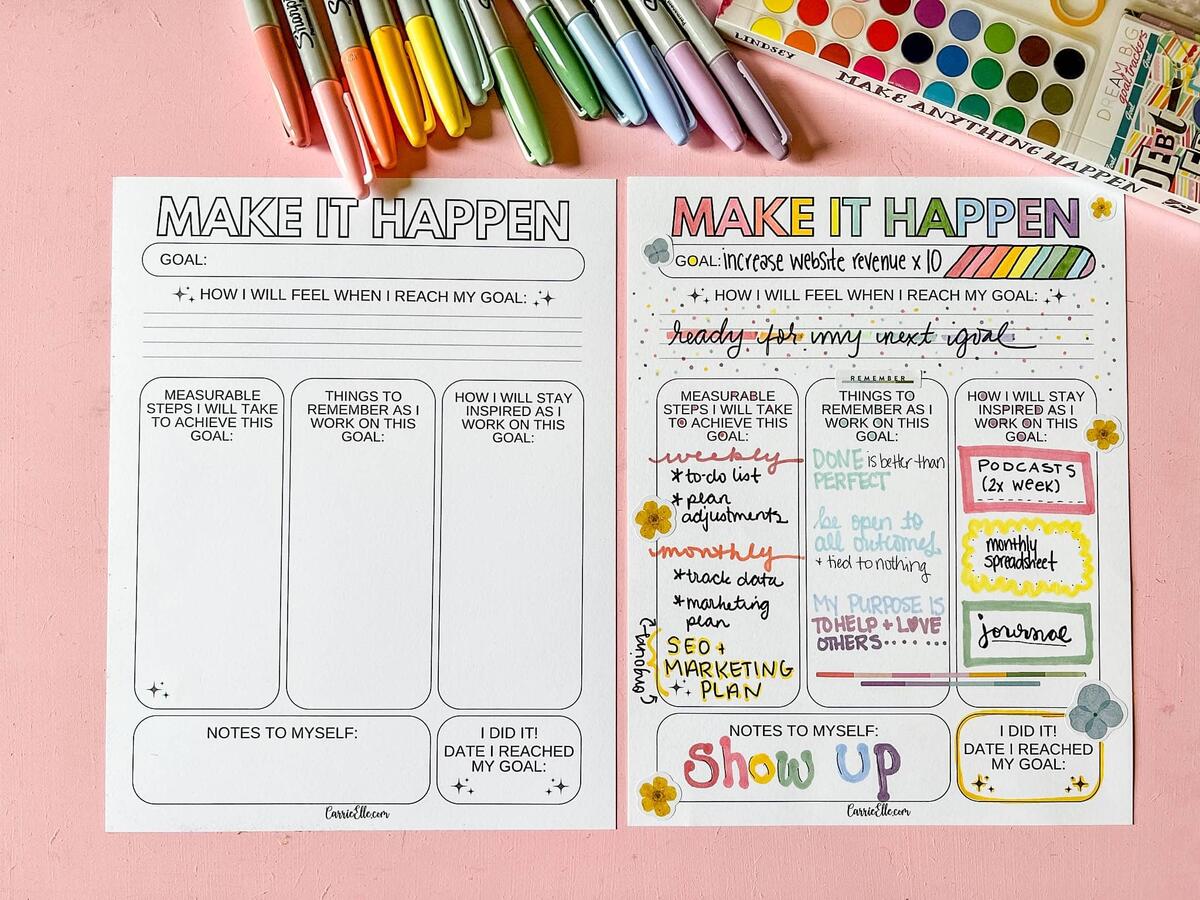 Sharpie
LINDSEY
MAKE ANYTHING HAPPEN
DREAM BIG
goal trackers
DEBT
MAKE IT HAPPEN
GOAL:
HOW I WILL FEEL WHEN I REACH MY GOAL:
MEASURABLE
STEPS I WILL TAKE
TO ACHIEVE THIS
GOAL:
THINGS TO
REMEMBER AS I
WORK ON THIS
GOAL:
HOW I WILL STAY
INSPIRED AS I
WORK ON THIS
GOAL:
NOTES TO MYSELF:
I DID IT!
DATE I REACHED
MY GOAL:
CarrieElle.com
MAKE IT HAPPEN
GOAL: increase website revenue x 10
HOW I WILL FEEL WHEN I REACH MY GOAL:
ready for my next goal
MEASURABLE
STEPS I WILL TAKE
TO ACHIEVE THIS
GOAL:
weekly
* to-do list
* plan
adjustments
monthly
* track data
* marketing
plan
ongoing
SEO +
MARKETING
PLAN
REMEMBER
THINGS TO
REMEMBER AS I
WORK ON THIS
GOAL:
DONE is better than
PERFECT
be open to
all outcomes
+ tied to nothing
MY PURPOSE IS
TO HELP + LOVE
OTHERS.......
HOW I WILL STAY
INSPIRED AS I
WORK ON THIS
GOAL:
PODCASTS
(2x week)
monthly
spreadsheet
journal
NOTES TO MYSELF:
Show UP
I DID IT!
DATE I REACHED
MY GOAL:
CarrieElle.com